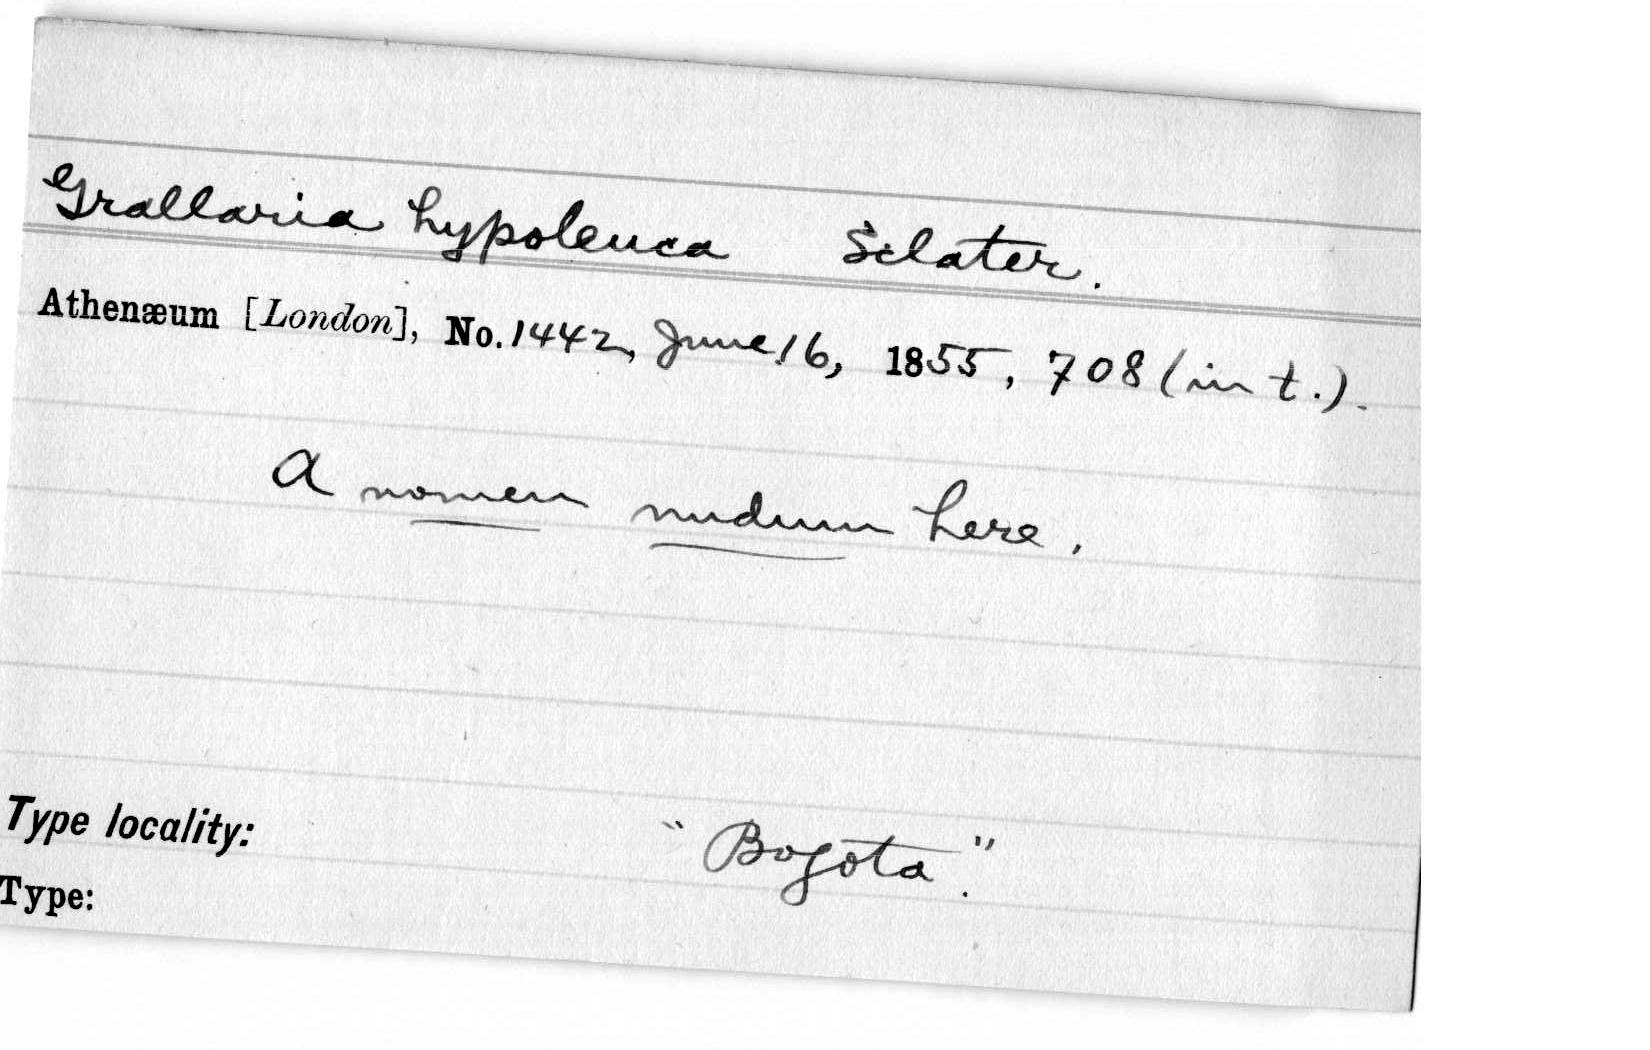 Grallaria hypoleuca Sclater.
Athenæum [London], No. 1442, June 16, 1855, 708 (in t.).
A nomen nudum here.
Type locality: "Bogota."
Type: